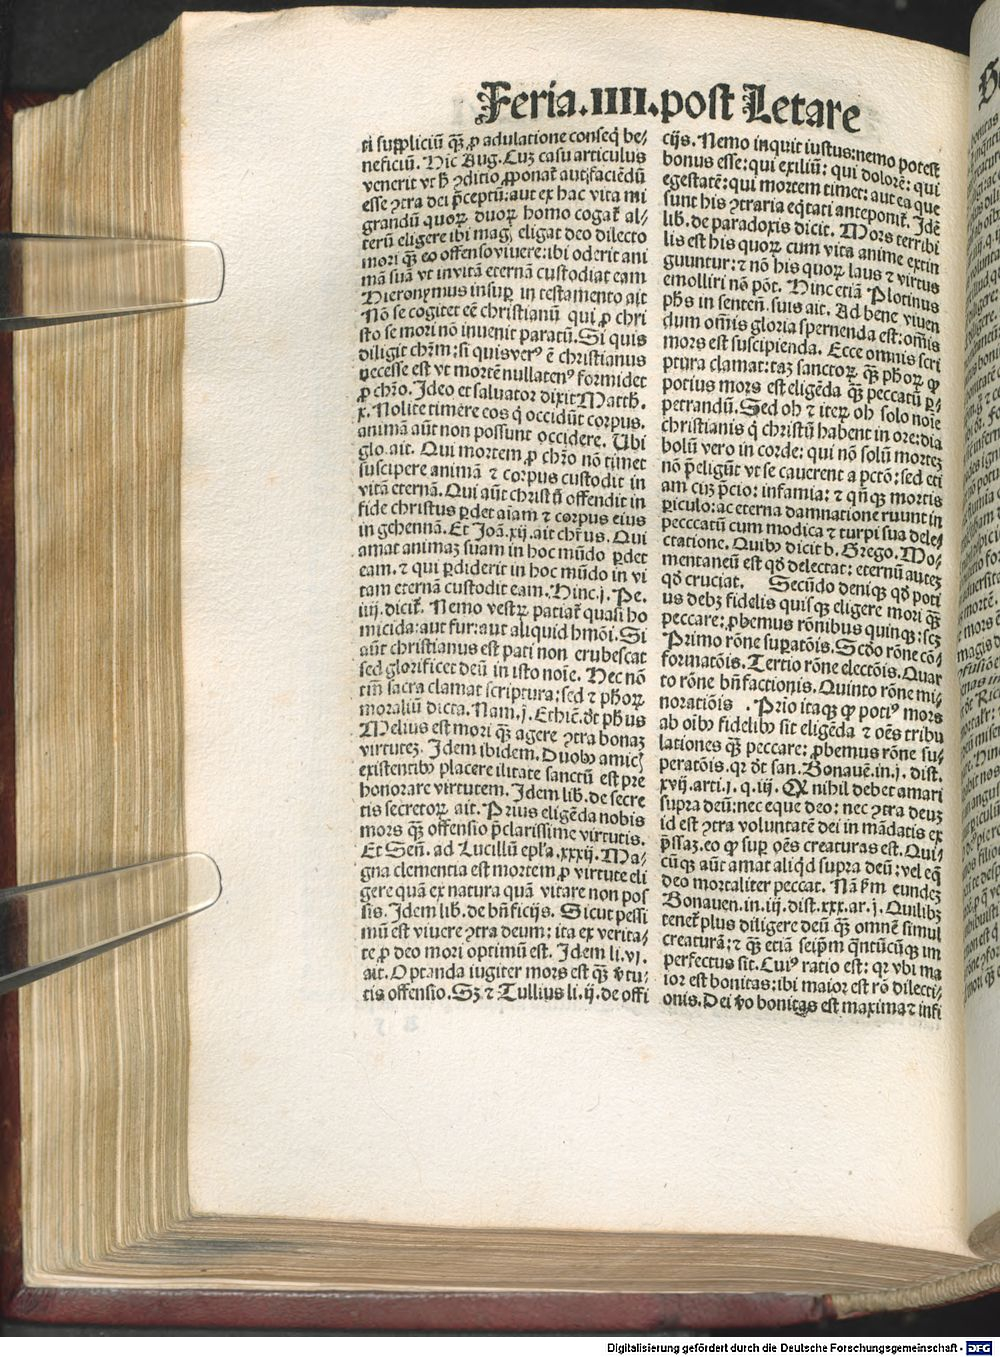 Feria.IIII.post Letare
ti suppliciũ q̃ꝫ ꝓ adulatione conseq̃ be⸗
neficiũ. Hic Aug. Cuꝫ casu articulus
venerit vt h̃ ꝯditio ꝓponat᷑ aut faciẽdũ
esse ꝯtra dei p̃ceptũ: aut ex hac vita mi
grandũ quoꝝ duoꝝ homo cogat᷑ al⸗
terũ eligere ibi mag eligat deo dilecto
mori q̃ꝫ eo offenso viuere: ibi oderit ani
mã suã vt in vitã eternã custodiat eam
Hieronymus insuꝑ in testamento ait
Nõ se cogitet eẽ christianũ qui ꝓ chri
sto se mori nõ inuenit paratũ. Si quis
diligit chr̃m: si quis verꝰ ẽ christianus
necesse est vt mortẽ nullatenꝰ formidet
ꝓ chr̃o. Ideo et saluator dixit Matth.
x. Nolite timere eos q̃ occidũt corpus.
animã aũt non possunt occidere. Ubi
glo. ait. Qui mortem ꝓ chr̃o nõ timet
suscipere animã ⁊ corpus custodit in
vitã eternã. Qui aũt christũ offendit in
fide christus ꝑdet aĩam ⁊ corpus eius
in gehennã. Et Joã. xij. ait chr̃us. Qui
amat animaꝫ suam in hoc mũdo ꝑdet
eam. ⁊ qui ꝑdiderit in hoc mũdo in vi
tam eternã custodit eam. Hinc. j. Pe.
iiij. dicit᷑. Nemo vestꝝ patiat᷑ quasi ho
micida: aut fur: aut aliquid hmõi. Si
aũt christianus est pati non erubescat
sed glorificet deũ in isto noĩe. Nec nõ
tm̃ sacra clamat scriptura: sed ⁊ ph̃oꝝ
moraliũ dicta. Nam. j. Ethic̃. dt̃ ph̃us
Melius est mori q̃ꝫ agere ꝯtra bonaꝫ
virtuteꝫ. Idem ibidem. Duobꝰ amic
existentibꝰ placere sanctũ est pre
honorare virtutem. Idem lib. de secre
tis secretoꝝ ait. Prius eligẽda nobis
mors q̃ꝫ offensio p̃clarissime virtutis.
Et Señ. ad Lucillũ epl̃a. xxxij. Ma⸗
gna clementia est mortem ꝓ virtute eli
gere quã ex natura quã vitare non pos
sis. Idem lib. de bñficijs. Sicut pessi
mũ est viuere ꝯtra deum: ita ex verita⸗
te ꝓ deo mori optimũ est. Idem li. vj.
ait. Optanda iugiter mors est q̃ꝫ v̾tu⸗
tis offensio. Sꝫ ⁊ Tullius li. ij. de offi
cijs. Nemo inquit iustus: nemo potest
bonus esse: qui exiliũ: qui dolorẽ: qui
egestatẽ: qui mortem timet: aut ea que
sunt his ꝯtraria eq̃tati anteponit᷑. Idẽ
lib. de paradoxis dicit. Mors terribi
lis est his quoꝝ cum vita anime extin
guuntur: ⁊ nõ his quoꝝ laus ⁊ virtus
emolliri nõ põt. Hinc etiã Plotinus
ph̃s in senteñ. suis ait. Ad bene viuen
dum om̃is gloria spernenda est: om̃is
mors est suscipienda. Ecce omnis scri
ptura clamat: taꝫ sanctoꝝ q̃ꝫ ph̃oꝝ ꝙ
potius mors est eligẽda q̃ꝫ peccatũ ꝑ⸗
petrandũ. Sed oh ⁊ iteꝝ oh solo noĩe
christianis q̃ christũ habent in ore: dia
bolũ vero in corde: qui nõ solũ morteꝫ
nõ p̃eligũt vt se cauerent a pctõ: sed eti
am cuꝫ p̃cio: infamia: ⁊ qñqꝫ mortis
ꝑiculo: ac eterna damnatione ruunt in
pecccatũ cum modica ⁊ turpi sua dele⸗
ctatione. Quibꝰ dicit b. Grego. Mo⸗
mentaneũ est qd̾ delectat: eternũ auteꝫ
qd̾ cruciat. Secũdo deniqꝫ qd̾ poti
us debꝫ fidelis quisqꝫ eligere mori q̃ꝫ
peccare: ꝓbemus rõnibus quinqꝫ: scꝫ
Primo rõne suꝑatõis. Scd̾o rõne cõ⸗
formatõis. Tertio rõne electõis. Quar
to rõne bñfactionis. Quinto rõne mi⸗
noratiõis. Prio itaqꝫ ꝙ potiꝰ mors
ab oĩbꝰ fidelibꝰ sit eligẽda ⁊ oẽs tribu
lationes q̃ꝫ peccare: ꝓbemus rõne su⸗
peratõis. qr dt̃ san. Bonauẽ. in. j. dist.
xvij. arti. j. q. iij. Qꝛ nihil debet amari
supra deũ: nec eque deo: nec ꝯtra deuꝫ
id est ꝯtra voluntatẽ dei in mãdatis ex
p̃ssaꝫ. eo ꝙ suꝑ oẽs creaturas est. Qui⸗
cũqꝫ aũt amat aliqd̾ supra deũ: vel eq̃
deo mortaliter peccat. Nã fm̃ eundeꝫ
Bonauen. in. iij. dist. xxx. ar. j. Quilibꝫ
tenet᷑ plus diligere deũ q̃ꝫ omnẽ simul
creaturã: ⁊ q̃ꝫ etiã seip̃m q̃ntũcũqꝫ im
perfectus sit. Cuiꝰ ratio est: qr vbi ma
ior est bonitas: ibi maior est rõ dilecti⸗
onis. Dei v̾o bonitas est maxima ⁊ infi
Digitalisierung gefördert durch die Deutsche Forschungsgemeinschaft - DFG